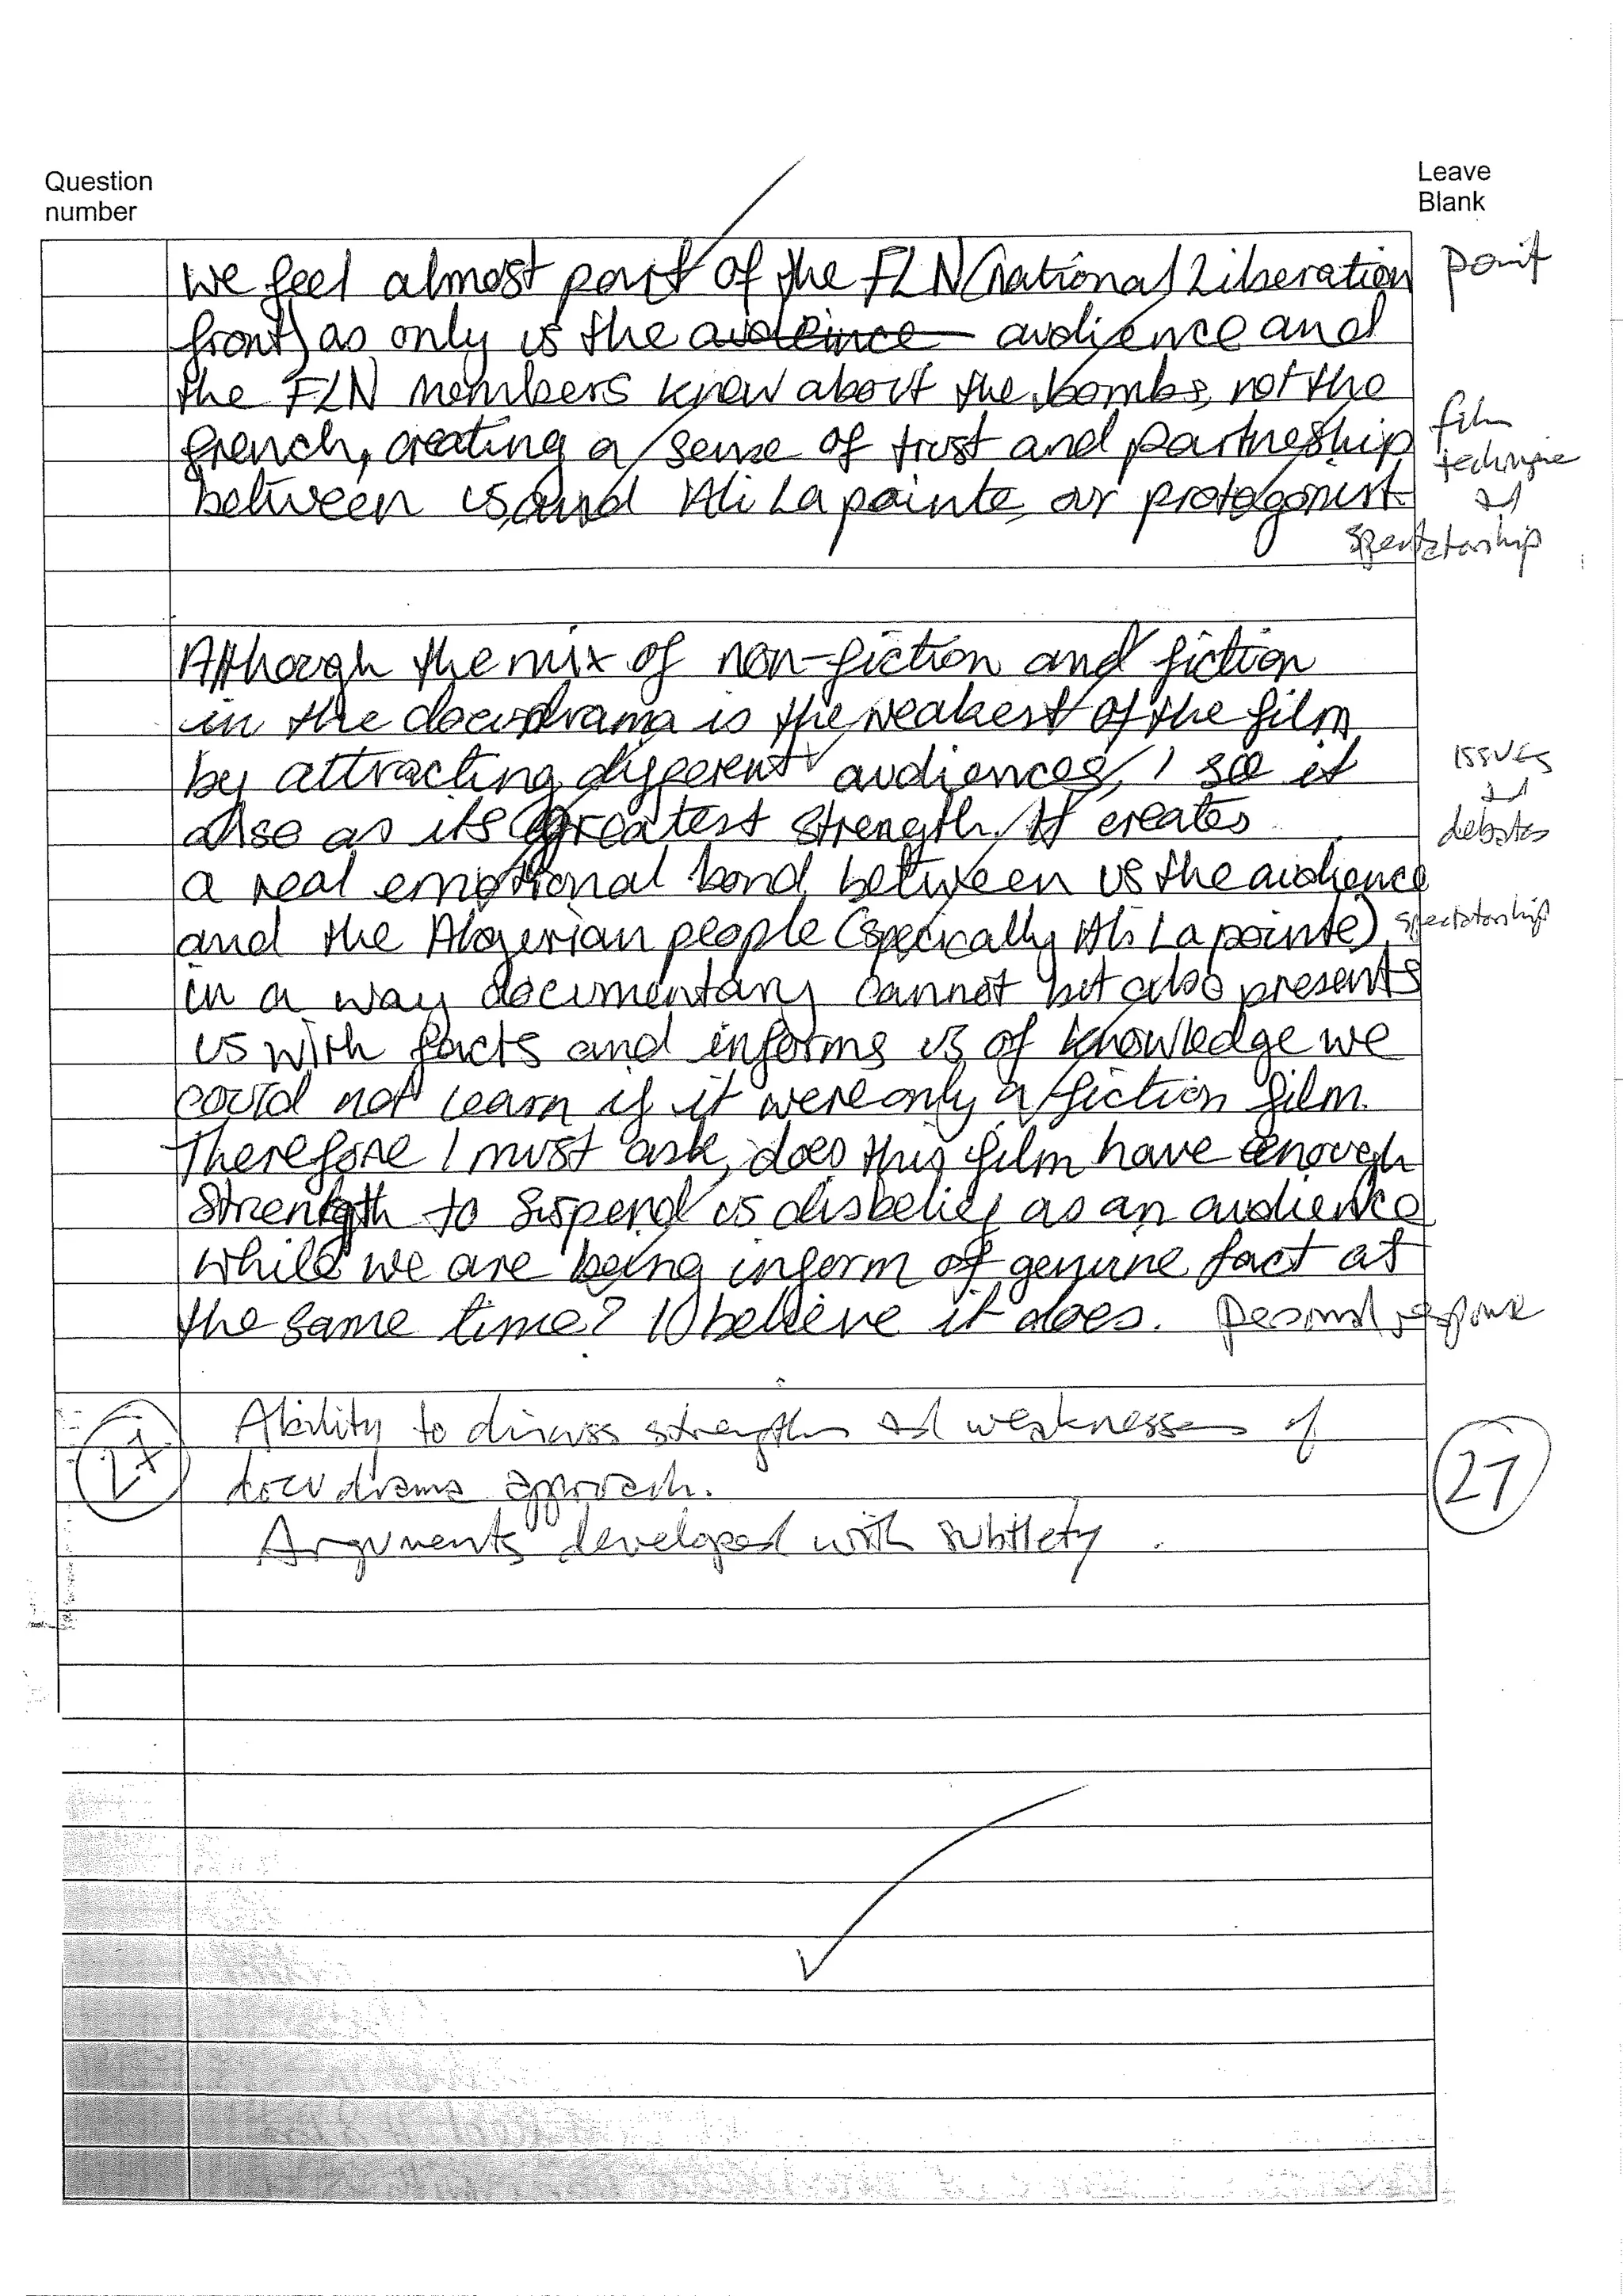 Question
number
Leave
Blank
We feel almost part of the FLN (national Liberation
front) as only us the audeince audience and
the FLN members know about the bombs, not the
french, creating a sense of trust and partneship
between us and Ali La pointe, our protagonist.
point
film
technique
and
spectatorship
Although the mix of non-fiction and fiction
in the docudrama is the weakest of the film
by attracting different audiences, I see it
also as its greatest strength. It creates
a real emotional bond between us the audience
and the Algerian people (specically Ali La pointe)
in a way documentary cannot but also presents
us with facts and informs us of knowledge we
could not learn if it were only a fiction film.
Therefore I must ask, does this film have enough
strength to suspend us disbelief as an audience
while we are being inform of genuine fact at
the same time? I believe it does.
issues
and
debates
spectatorship
Personal response
27
Ability to discuss strengths and weaknesses of
docudrama approach.
Arguments developed with subtlety.
27